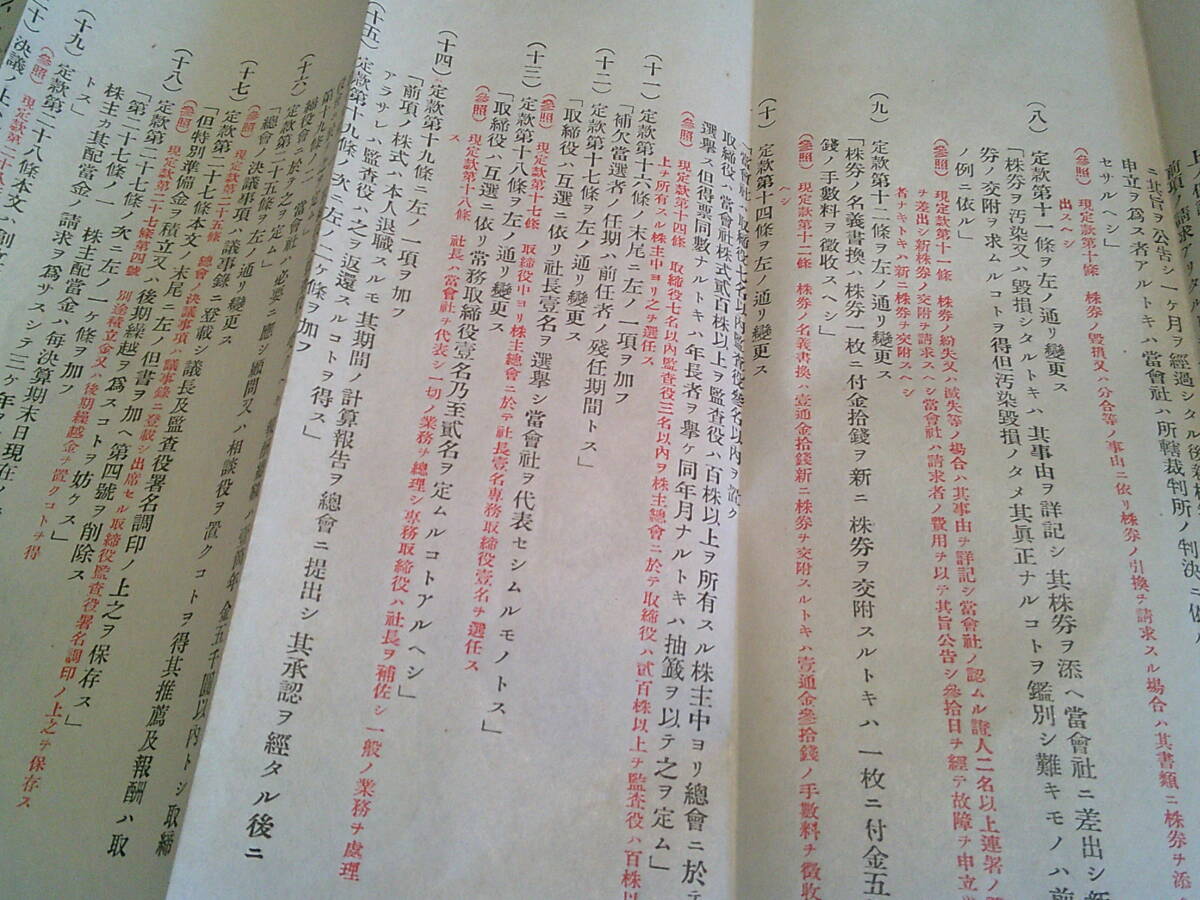 前項ノ請求アリタ
ニ其旨ヲ公告シ一ヶ月ヲ經過シタル後
申立ヲ爲ス者アルトキハ當會社ハ所轄裁判所ノ判決ニ依
セサルヘシ」
(參照) 現定款第十條 株券ノ毀損又ハ分合等ノ事由ニ依リ株券ノ引換ヲ請求スル場合ハ其書類ニ株券ヲ添
出スヘシ
(八) 定款第十一條ヲ左ノ通リ變更ス
「株券ヲ汚染又ハ毀損シタルトキハ其事由ヲ詳記シ其株券ヲ添ヘ當會社ニ差出シ新
券ノ交附ヲ求ムルコトヲ得但汚染毀損ノタメ其眞正ナルコトヲ鑑別シ難キモノハ前
ノ例ニ依ル」
(參照) 現定款第十一條 株券ノ紛失又ハ滅失等ノ場合ハ其事由ヲ詳記シ當會社ノ認ムル證人二名以上連署ノ
ヲ差出シ新株券ノ交附ヲ請求スヘシ當會社ハ請求者ノ費用ヲ以テ其旨公告シ參拾日ヲ經テ故障ヲ申立
者ナキトキハ新ニ株券ヲ交附スヘシ
(九) 定款第十二條ヲ左ノ通リ變更ス
「株券ノ名義書換ハ株券一枚ニ付金拾錢ヲ新ニ株券ヲ交附スルトキハ一枚ニ付金五
錢ノ手數料ヲ徴收スヘシ」
(參照) 現定款第十二條 株券ノ名義書換ハ壹通金拾錢新ニ株券ヲ交附スルトキハ壹通金參拾錢ノ手數料ヲ徴收
ヘシ
(十) 定款第十四條ヲ左ノ通リ變更ス
「當會社ハ取締役七名以內監査役參名以內ヲ置ク
取締役ハ當會社株式貳百株以上ヲ監査役ハ百株以上ヲ所有スル株主中ヨリ總會ニ於テ
選擧ス但得票同數ナルトキハ年長者ヲ擧ケ同年月ナルトキハ抽籤ヲ以テ之ヲ定ム」
(參照) 現定款第十四條 取締役七名以內監査役三名以內ヲ株主總會ニ於テ取締役ハ貳百株以上ヲ監査役ハ百株以
上ヲ所有スル株主中ヨリ之ヲ選任ス
(十一) 定款第十六條ノ末尾ニ左ノ一項ヲ加フ
「補欠當選者ノ任期ハ前任者ノ殘任期間トス」
(十二) 定款第十七條ヲ左ノ通リ變更ス
「取締役ハ互選ニ依リ社長壹名ヲ選擧シ當會社ヲ代表セシムルモノトス」
(參照) 現定款第十七條 取締役中ヨリ株主總會ニ於テ社長壹名專務取締役壹名ヲ選任ス
(十三) 定款第十八條ヲ左ノ通リ變更ス
「取締役ハ互選ニ依リ常務取締役壹名乃至貳名ヲ定ムルコトアルヘシ」
(參照) 現定款第十八條 社長ハ當會社ヲ代表シ一切ノ業務ヲ總理シ專務取締役ハ社長ヲ補佐シ一般ノ業務ヲ處理
ス
(十四) 定款第十九條ニ左ノ一項ヲ加フ
「前項ノ株式ハ本人退職スルモ其期間ノ計算報告ヲ總會ニ提出シ其承認ヲ經タル後ニ
アラサレハ監査役ハ之ヲ返還スルコトヲ得ス」
(十五) 定款第十九條ノ次ニ左ノ二ヶ條ヲ加フ
金五千圓以內トシ取締
(十六)
必要ニ應シ顧問又ハ相談役ヲ置クコトヲ得其推薦及報酬ハ取
締役會ニ於テ之ヲ定ム」
定款第二十五條ヲ左ノ通リ變更ス
「總會ノ決議事項ハ議事錄ニ登載シ議長及監査役署名調印ノ上之ヲ保存ス」
(參照) 現定款第二十五條 總會ノ決議事項ハ議事錄ニ登載シ出席セル取締役監査役署名調印ノ上之ヲ保存ス
(十七) 定款第二十七條本文ノ末尾ニ左ノ但書ヲ加ヘ第四號ヲ削除ス
「但特別準備金ヲ積立又ハ後期繰越ヲ爲スコトヲ妨ケス」
(參照) 現定款第二十七條第四號 別途積立金又ハ後期繰越金ヲ置クコトヲ得
(十八) 定款第二十七條ノ次ニ左ノ一ヶ條ヲ加フ
「第二十七條ノ一 株主配當金ハ每決算期末日現在ノ
株主カ其配當金ノ請求ヲ爲サスシテ三ヶ年ヲ
トス」
(十九) 定款第二十八條本文ハ削
(參照) 現定款第二十八條
決議ノ上